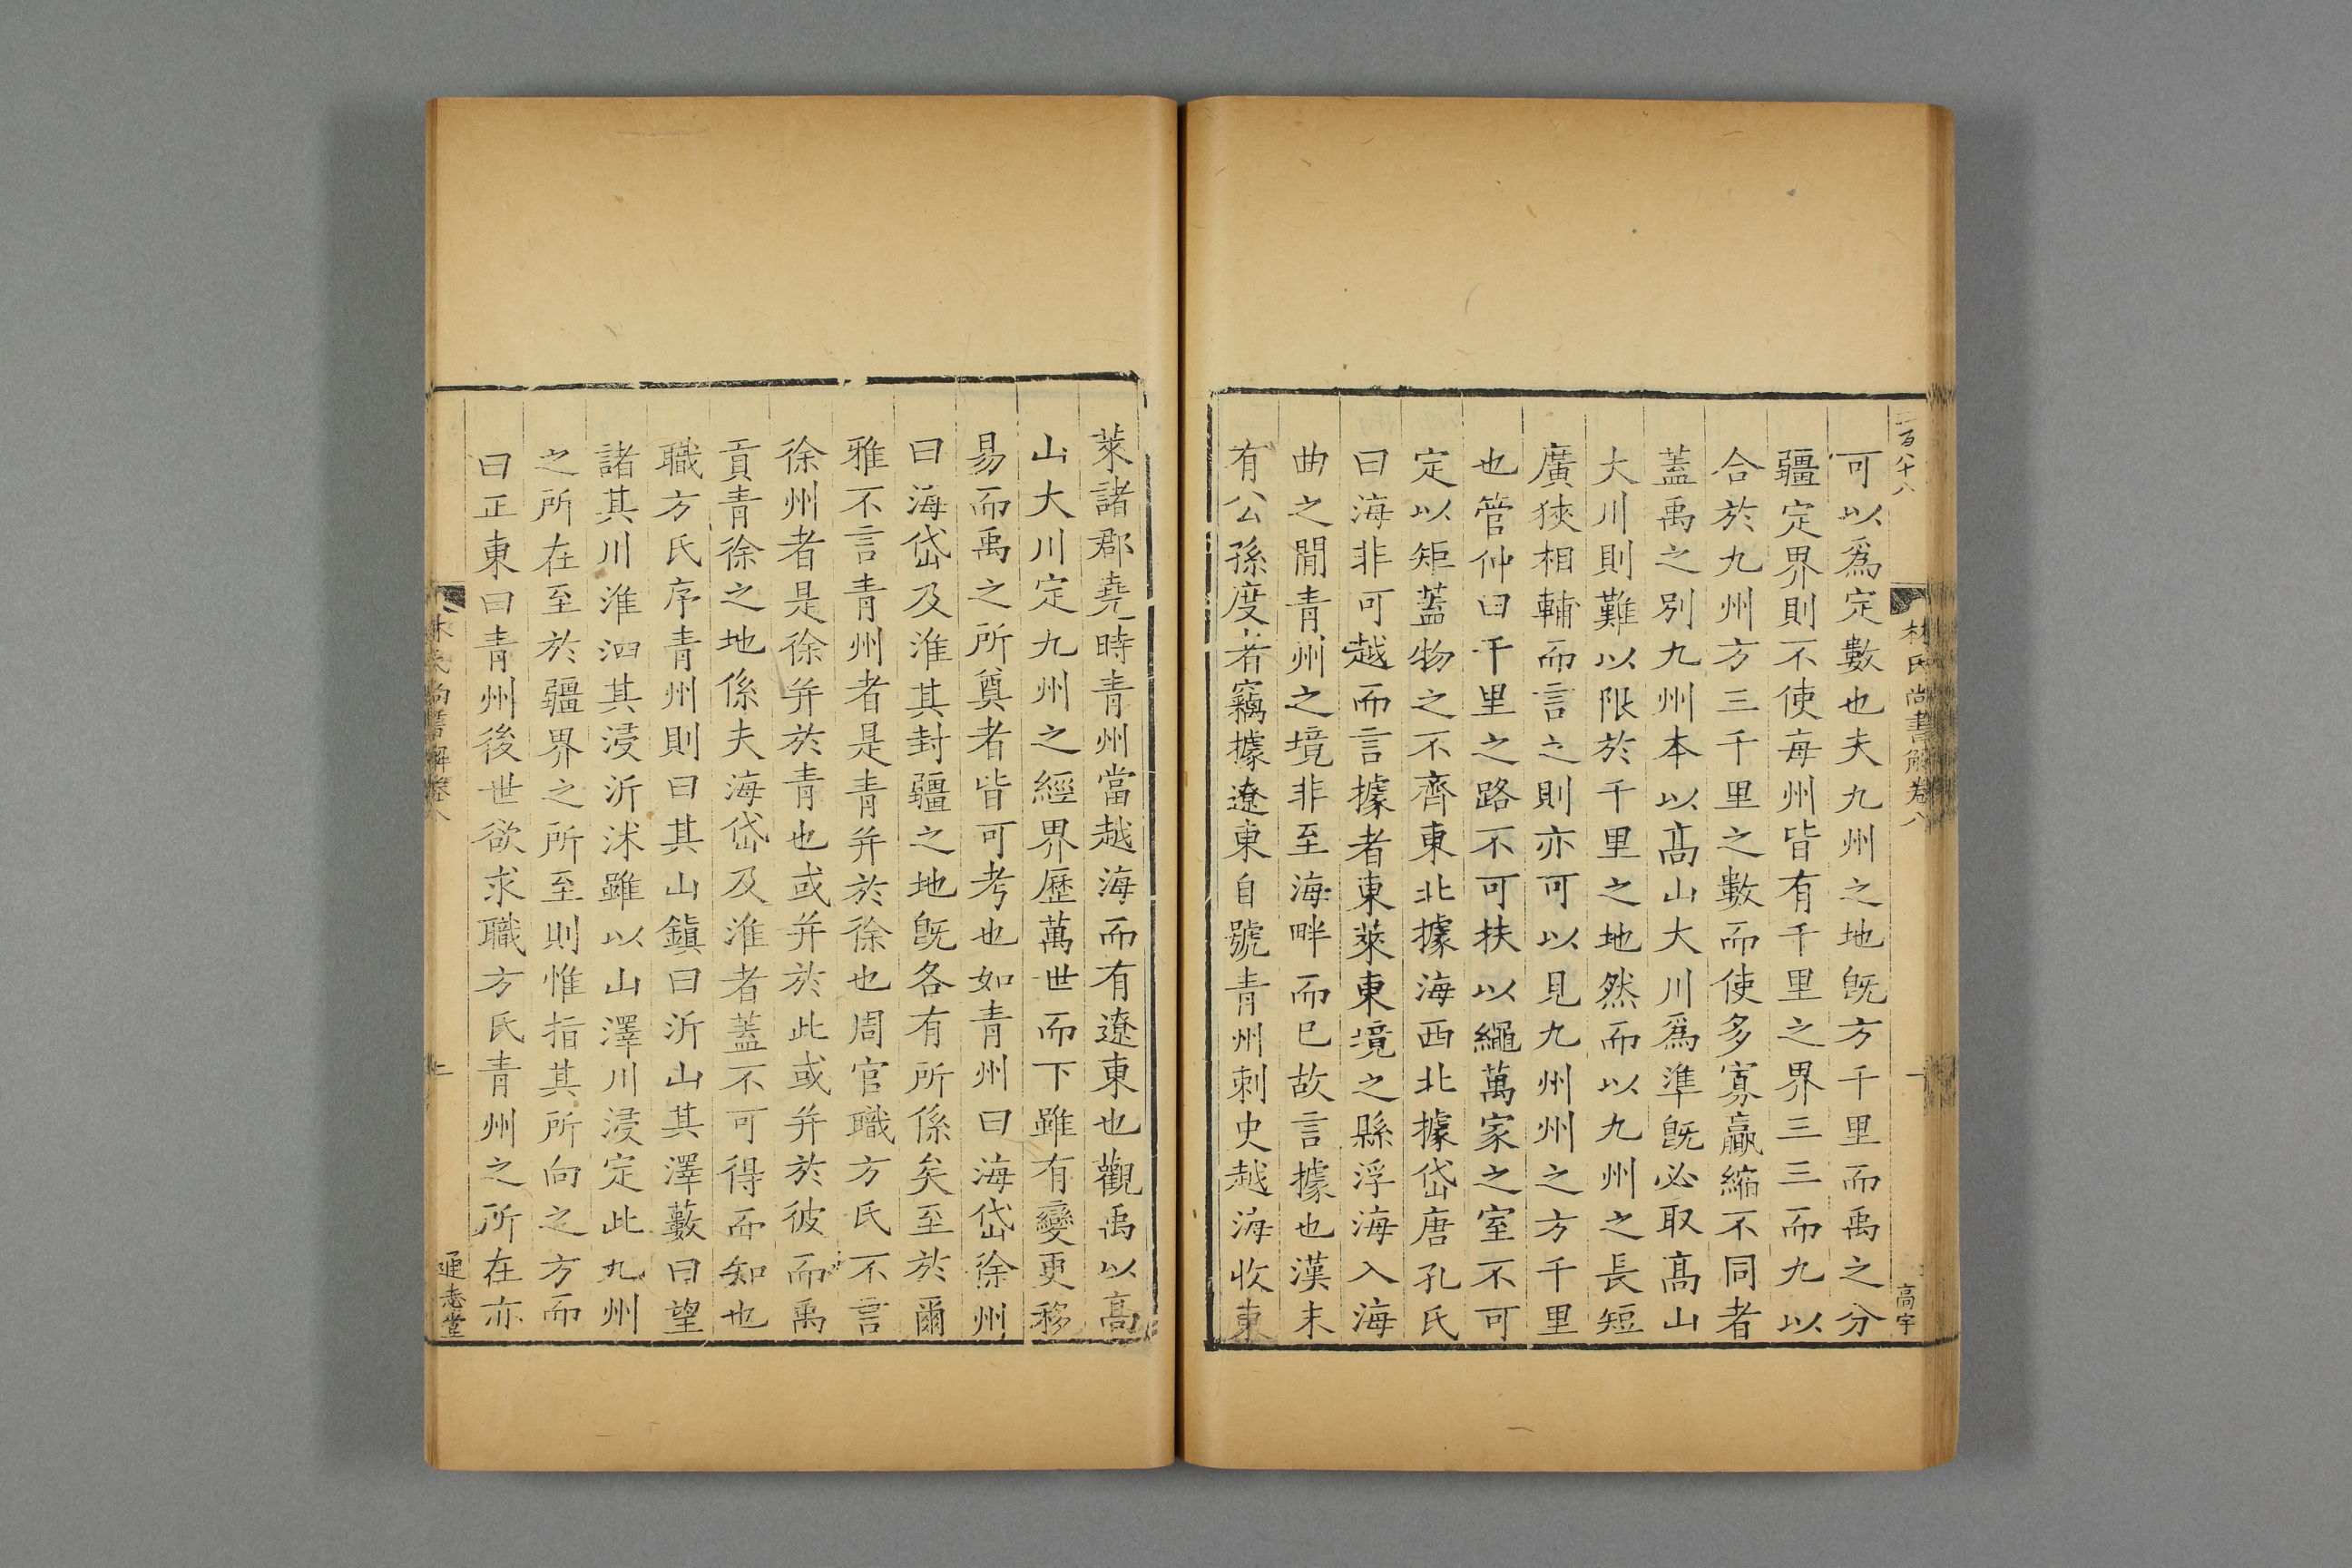 二百八十八
林氏尚書解卷八
一
高宇
可以爲定數也夫九州之地旣方千里而禹之分
疆定界則不使每州皆有千里之界三三而九以
合於九州方三千里之數而使多寡贏縮不同者
蓋禹之別九州本以髙山大川爲準旣必取髙山
大川則難以限於千里之地然而以九州之長短
廣狹相輔而言之則亦可以見九州州之方千里
也管仲曰千里之路不可扶以繩萬家之室不可
定以矩蓋物之不齊東北據海西北據岱唐孔氏
曰海非可越而言據者東萊東境之縣浮海入海
曲之閒青州之境非至海畔而已故言據也漢末
有公孫度者竊據遼東自號青州刺史越海收東
萊諸郡堯時青州當越海而有遼東也觀禹以髙
山大川定九州之經界歷萬世而下雖有變更移
易而禹之所奠者皆可考也如青州曰海岱徐州
曰海岱及淮其封疆之地旣各有所係矣至於爾
雅不言青州者是青并於徐也周官職方氏不言
徐州者是徐并於青也或并於此或并於彼而禹
貢青徐之地係夫海岱及淮者蓋不可得而知也
職方氏序青州則曰其山鎭曰沂山其澤藪曰望
諸其川淮泗其浸沂沭雖以山澤川浸定此九州
之所在至於疆界之所至則惟指其所向之方而
曰正東曰青州後世欲求職方氏青州之所在亦
林氏尚書解卷八
二
通志堂